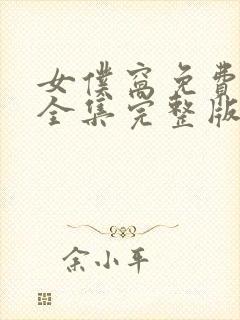 女僕窩免費
全集完整版
余小平